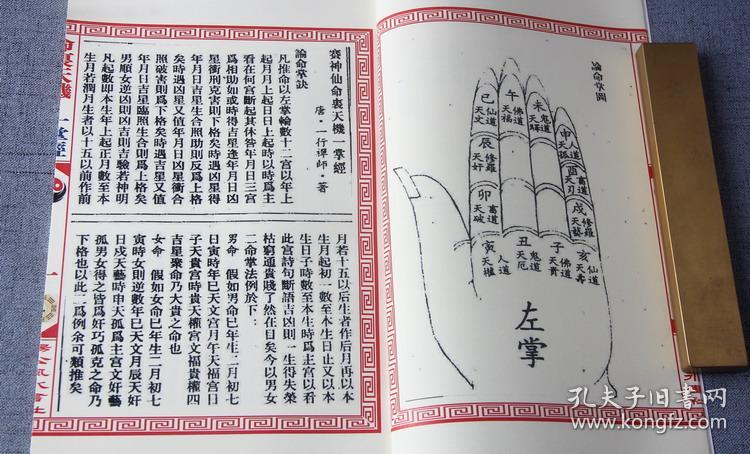 論命掌圖
巳 仙道 天文
午 佛道 天福
未 鬼道 天驛
申 人道 天孤
辰 修羅 天奸
酉 畜道 天刃
卯 畜道 天破
戌 修羅 天藝
寅 人道 天權
丑 鬼道 天厄
子 佛道 天貴
亥 仙道 天壽
左掌
賽神仙命裏天機一掌經
唐·一行禪師 著
論命掌訣
凡推命以左掌輪數十二宮以年上
起月月上起日日上起時以時爲主
看在何宮斷起其休咎年月日三宮
爲相助如或時得吉星逢年月日凶
星衝刑克害則下格矣時遇凶星得
年月日吉星生合照助則反爲上格
矣時遇凶星又值年月日凶星衝合
照破害則爲下格矣時遇吉星又值
年月日吉星臨照生合則爲上格矣
男順女逆凶則凶吉則吉驗若神明
凡起數即本生年上起正月數至本
生月若潤月生者以十五以前作前
月若十五以后生者作后月再以本
生月起初一數至本生日止又以本
生日子時數至本生時爲主宮以看
此宮詩句斷語吉凶則一生得失榮
枯窮通貴賤了然在目矣今以男女
二命掌法例於下：
男命 假如男命巳年生二月初七
日寅時年巳天文宮月午天福宮日
子天貴宮時貴天權宮文福貴權四
吉星聚命乃大貴之命也
女命 假如女命巳年生二月初七
寅時女則逆數年巳天文月辰天奸
日戌天藝時申天孤爲主宮文奸藝
孤男女得之皆爲奸巧孤克之命乃
下格也以此二爲例余可類推矣
一掌經
孔夫子旧书网
www.kongfz.com